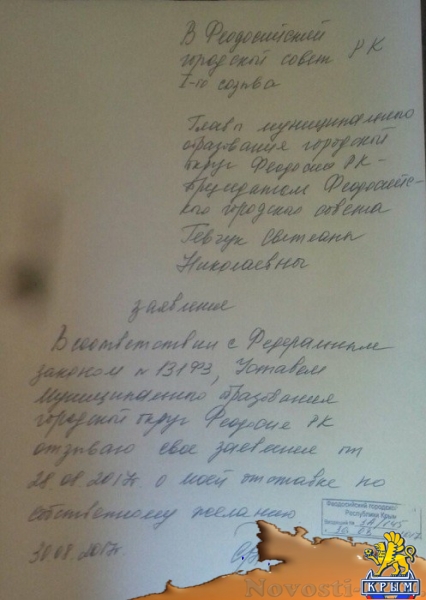 В Феодосийский
городской совет РК
I-го созыва
Главы муниципального
образования городской
округ Феодосия РК -
председателя Феодосийс-
кого городского совета
Гевчук Светланы
Николаевны
заявление
В соответствии с Федеральным
законом № 131ФЗ, Уставом
муниципального образования
городской округ Феодосия РК
отзываю свое заявление от
28.08.2017г. о моей отставке по
собственному желанию
Феодосийский городской
Республики Крым
30.08.2017г.
Novosti-
КРЫМ